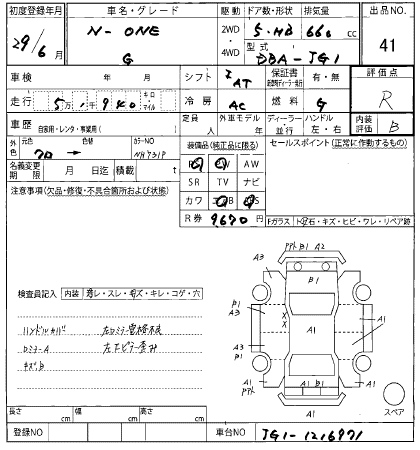 初度登録年月 車名・グレード 駆動 ドア数・形状 排気量 出品NO.
29/6月 N-ONE G 2WD・4WD 5・HB 660cc 41
型式 DBA-JG1
車検 年 月 シフト IAT 保証書 有・無 評価点
走行 5万 千940 キロ・マイル 冷房 AC 燃料 G R
車歴 自家用・レンタ・事業用( ) 定員 人 外車モデル 年 ディーラー・並行 ハンドル 左・右 内装評価 B
外色 元色 クロ → 色替 カラーNO NH731P
装備品(純正品に限る) セールスポイント(正常に作動するもの)
名義変更期限 月 日迄 積載 t
AW
SR TV ナビ
注意事項(欠品・修復・不具合箇所および状態)
カワ
R券 9,670円
Fガラス
キズ・ヒビ・ワレ・リペア跡
検査員記入 内装 スレ・キズ・キレ・コゲ・穴
ハンドルカバー 左ロミラー電格不良
左下ピラー歪み
キズB
PPト B1 A2
A3 A3
B1
P1
A3
X
X
A1
A1
P1
A3
B3
A1
PPト
A1 B1
A1
A1
スペア
長さ cm 幅 cm 高さ cm
登録NO 車台NO JG1-1216971